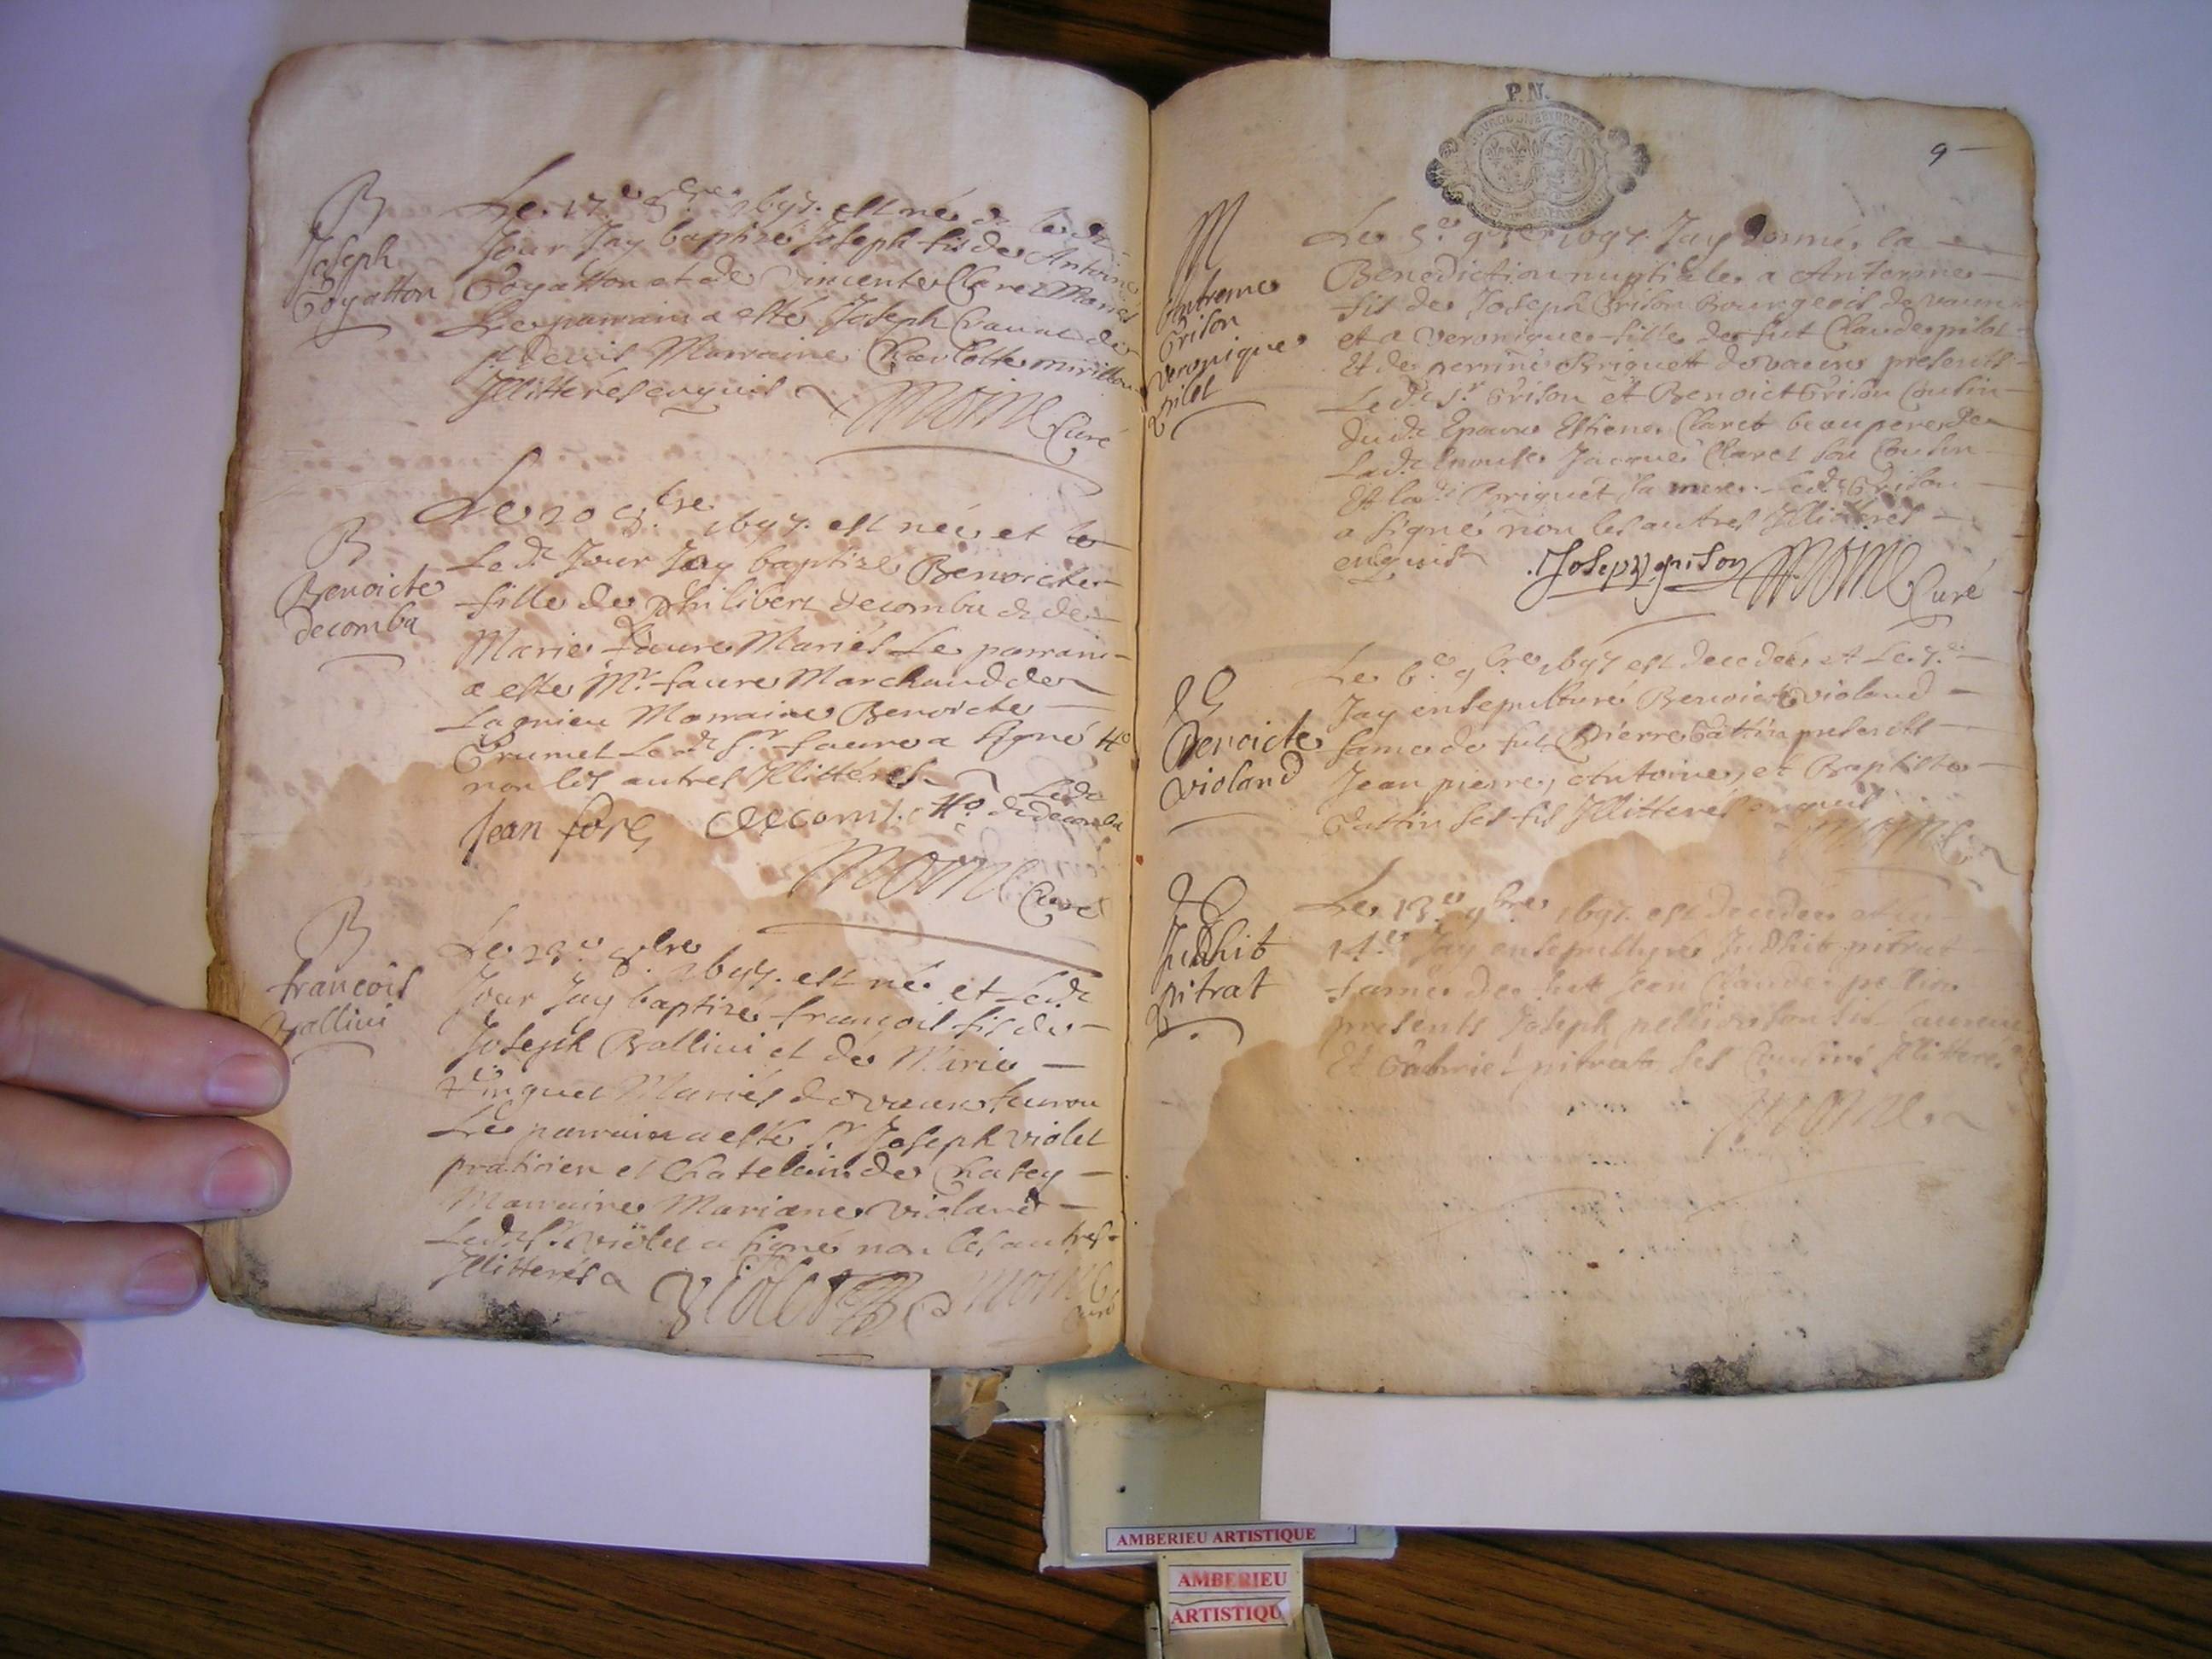 B
Joseph
Goyatton
Le 17.e 8bre 1697. est né & led.t
Jour Jay baptizé Joseph fis de Antoine
Goyatton et de Vincente Claret Mariés
Le parrain a esté Joseph Cravat de
st denis Marraine Charlotte mirillon
Illitterés enquis
Moine Curé
B
Benoicte
Decomba
Le 20 8.bre 1697. est née et le
Led.t Jour Jay baptizé Benoicte
fille de Philibert Decomba & de
Marie faure Mariés Le parrain
a esté Mr. faure Marchand de
Lagnieu Marraine Benoicte
Grumet Le d.t Sr. faure a signé
non les autres Illitterés
Jean fore
Moine Curé
B
francois
Ballini
Le 23.e 8.bre 1697. est né et Led.t
Jour Jay baptizé francois fis de
Joseph Ballini et de Marie
Tinguet Mariés de vaux
Le parrain a esté Sr. Joseph violet
praticien et Chatelain de Chatey
Marraine Mariane violand
Led.t Sr. violet a signé non les autres
Illitterés
violet Moine
Curé
P.N.
9
M
Anterme
Grison
Veronique
pilot
Le 5.e 9bre 1697. Jay donné la
Benediction nuptiale a Anterme
fis de Joseph Grison Bourgeois de vaux
et a Veronique fille de fut Claude pilot
Et de perrine Briquet de vaux presents
Led.t Sr. Grison et Benoict Grison Cousin
dud.t Epoux Estiene Claret beaupere de
Lad.te Epouse Jacque Claret son Cousin
Et lad.te Briquet sa mere. Led.t Grison
a signé non les autres Illitterés
enquis
Joseph grison Moine Curé
Benoicte
violand
Le 6.e 9bre 1697 est decedée et Le 7.e
Jay ensepulturé Benoicte violand
fame de fut Pierre Gattin presents
Jean pierre, Antoine, et Baptiste
Gattin ses fis Illitterés enquis
Moine
Judhit
pitrat
Le 13.e 9bre 1697. est decedée et le
14.e Jay ensepulturé Judhit pitrat
fame de fut Jean Claude
presents Joseph son fis
Et Gabriel pitrat ses Cousins Illitterés
Moine
AMBERIEU ARTISTIQUE
AMBERIEU
ARTISTIQU